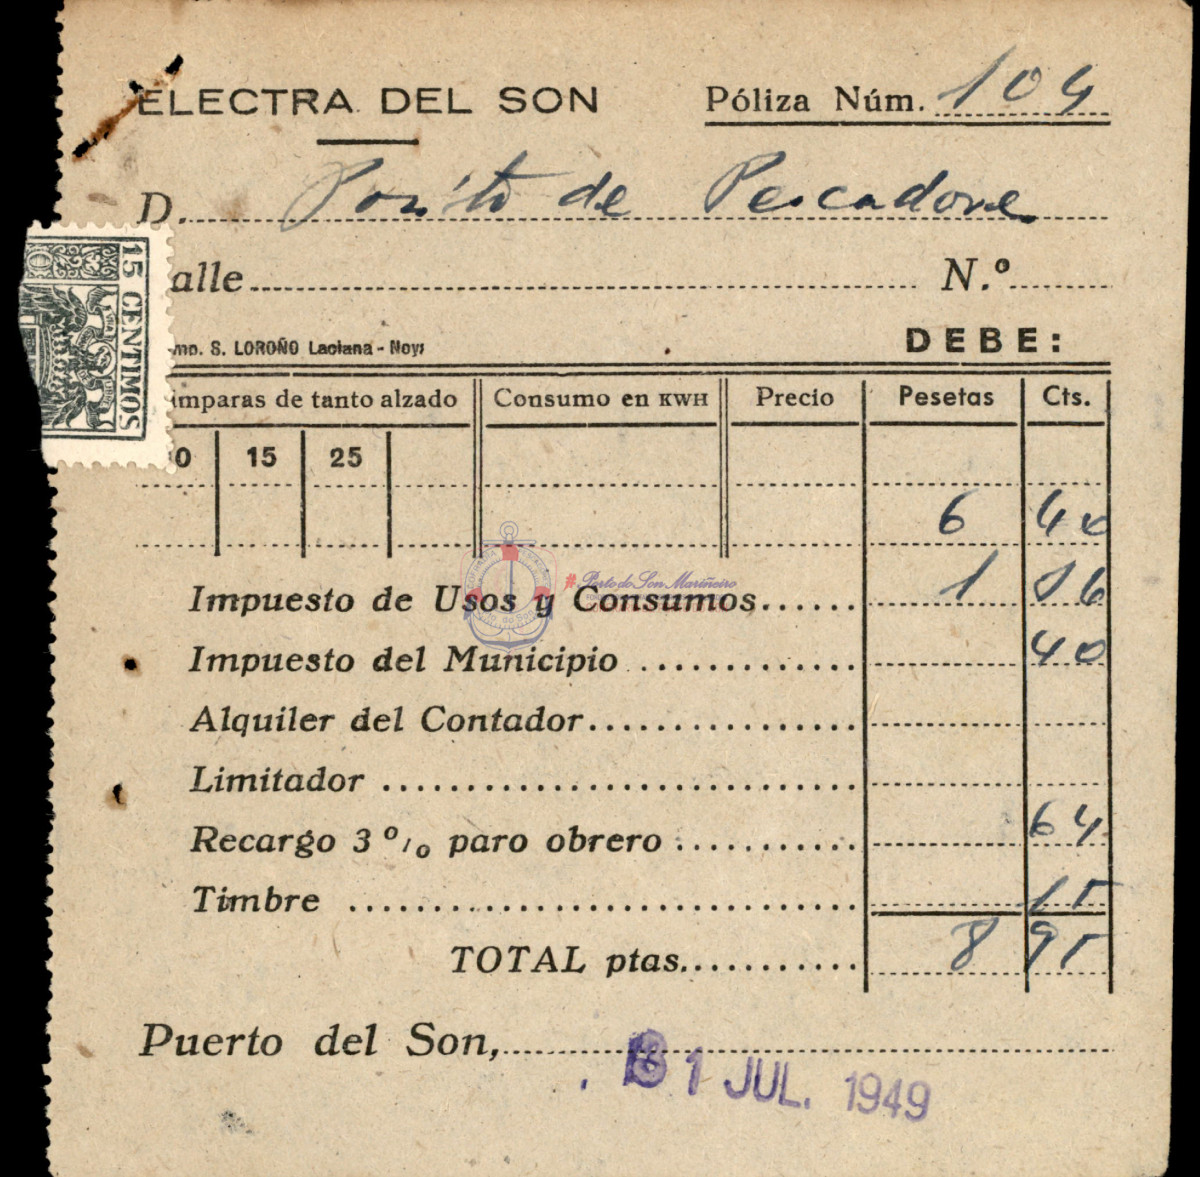 ELECTRA DEL SON Póliza Núm. 104
D. Posito de Pescadores
alle N.º
15 CENTIMOS
mp. S. LOROÑO Laciana - Noya
DEBE:
mparas de tanto alzado Consumo en KWH Precio Pesetas Cts.
0 15 25
6 40
Impuesto de Usos y Consumos...... 1 36
Impuesto del Municipio ............. 40
Alquiler del Contador................
Limitador .......................
Recargo 3 º/o paro obrero ........... 64
Timbre ............................. 15
TOTAL ptas............ 8 95
Puerto del Son, 31 JUL. 1949
#Porto do Son Mariñeiro